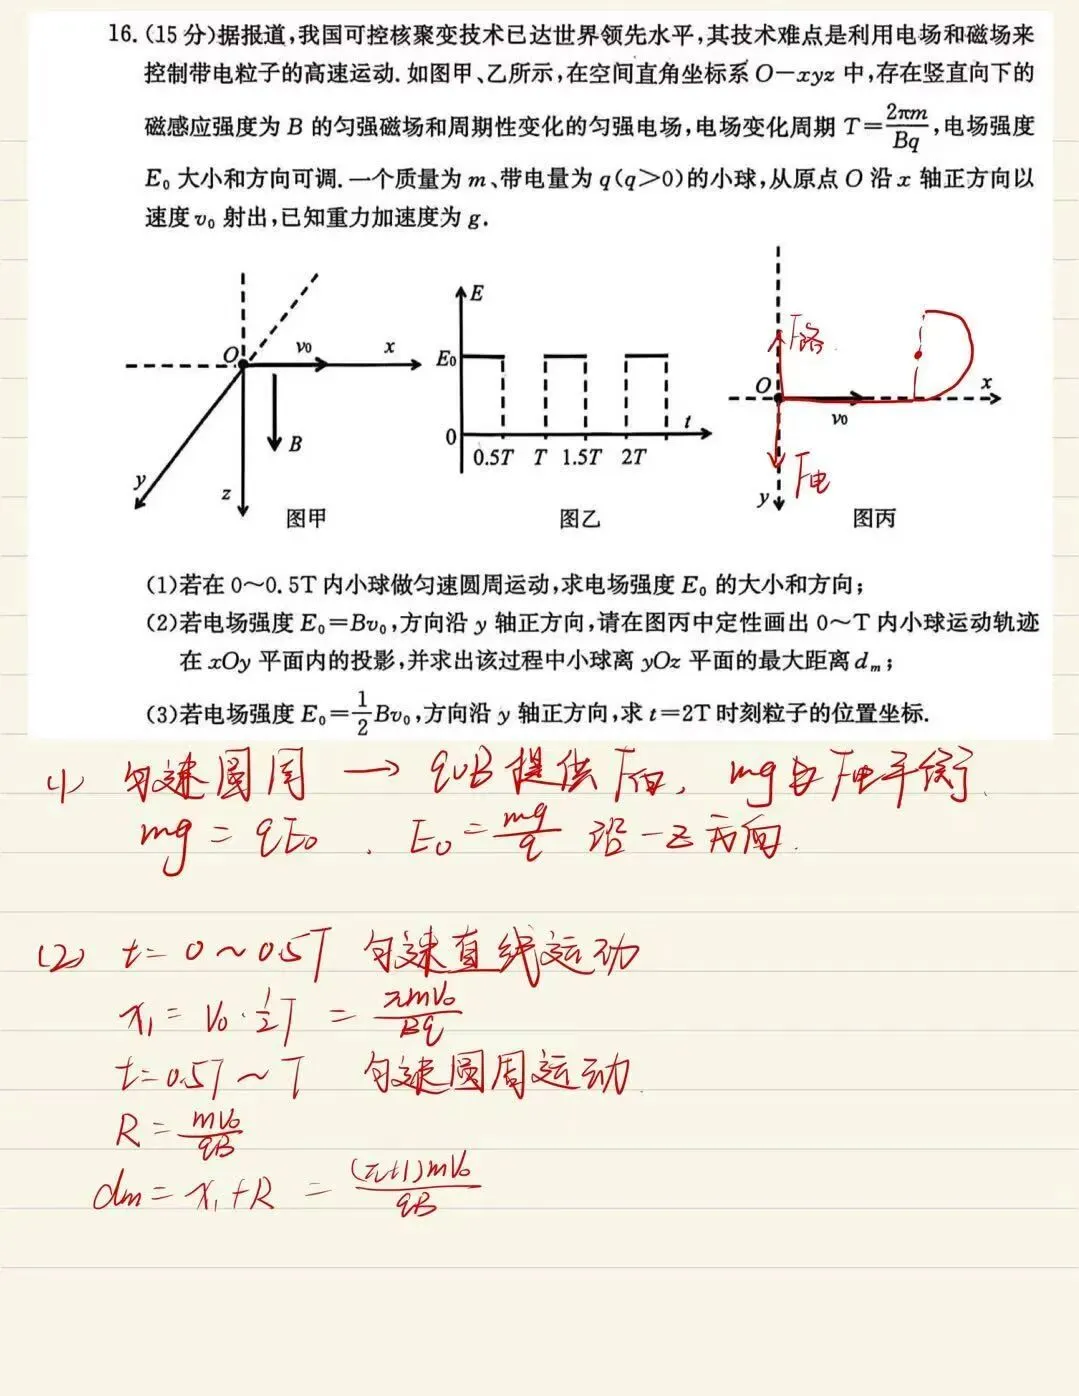 16.(15分)据报道,我国可控核聚变技术已达世界领先水平,其技术难点是利用电场和磁场来
控制带电粒子的高速运动.如图甲、乙所示,在空间直角坐标系O-xyz中,存在竖直向下的
磁感应强度为B的匀强磁场和周期性变化的匀强电场,电场变化周期T=2πm/Bq,电场强度
E₀大小和方向可调.一个质量为m、带电量为q(q>0)的小球,从原点O沿x轴正方向以
速度v₀射出,已知重力加速度为g.
O v₀ x
B
y
z
图甲
E
E₀
0
t
0.5T T 1.5T 2T
图乙
F洛
O
v₀
x
F电
y
图丙
(1)若在0~0.5T内小球做匀速圆周运动,求电场强度E₀的大小和方向;
(2)若电场强度E₀=Bv₀,方向沿y轴正方向,请在图丙中定性画出0~T内小球运动轨迹
在xOy平面内的投影,并求出该过程中小球离yOz平面的最大距离dₘ;
(3)若电场强度E₀=1/2Bv₀,方向沿y轴正方向,求t=2T时刻粒子的位置坐标.
(1) 匀速圆周 → qvB提供F向, mg与F电平衡.
mg=qE₀. E₀=mg/q 沿-z方向.
(2) t=0~0.5T 匀速直线运动
x₁=V₀·1/2T=πmV₀/Bq
t=0.5T~T 匀速圆周运动.
R=mV₀/qB
dm=x₁+R=(π+1)mV₀/qB